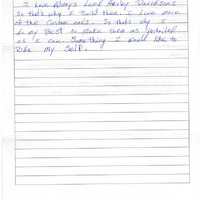 I Love Always Loved Harley Davidsons
So that's why I Build them. I Love more
of the Custom ones. So that's why I
do my Best to Make them as Detailed
as I can. Something I would like to
Ride my Self.